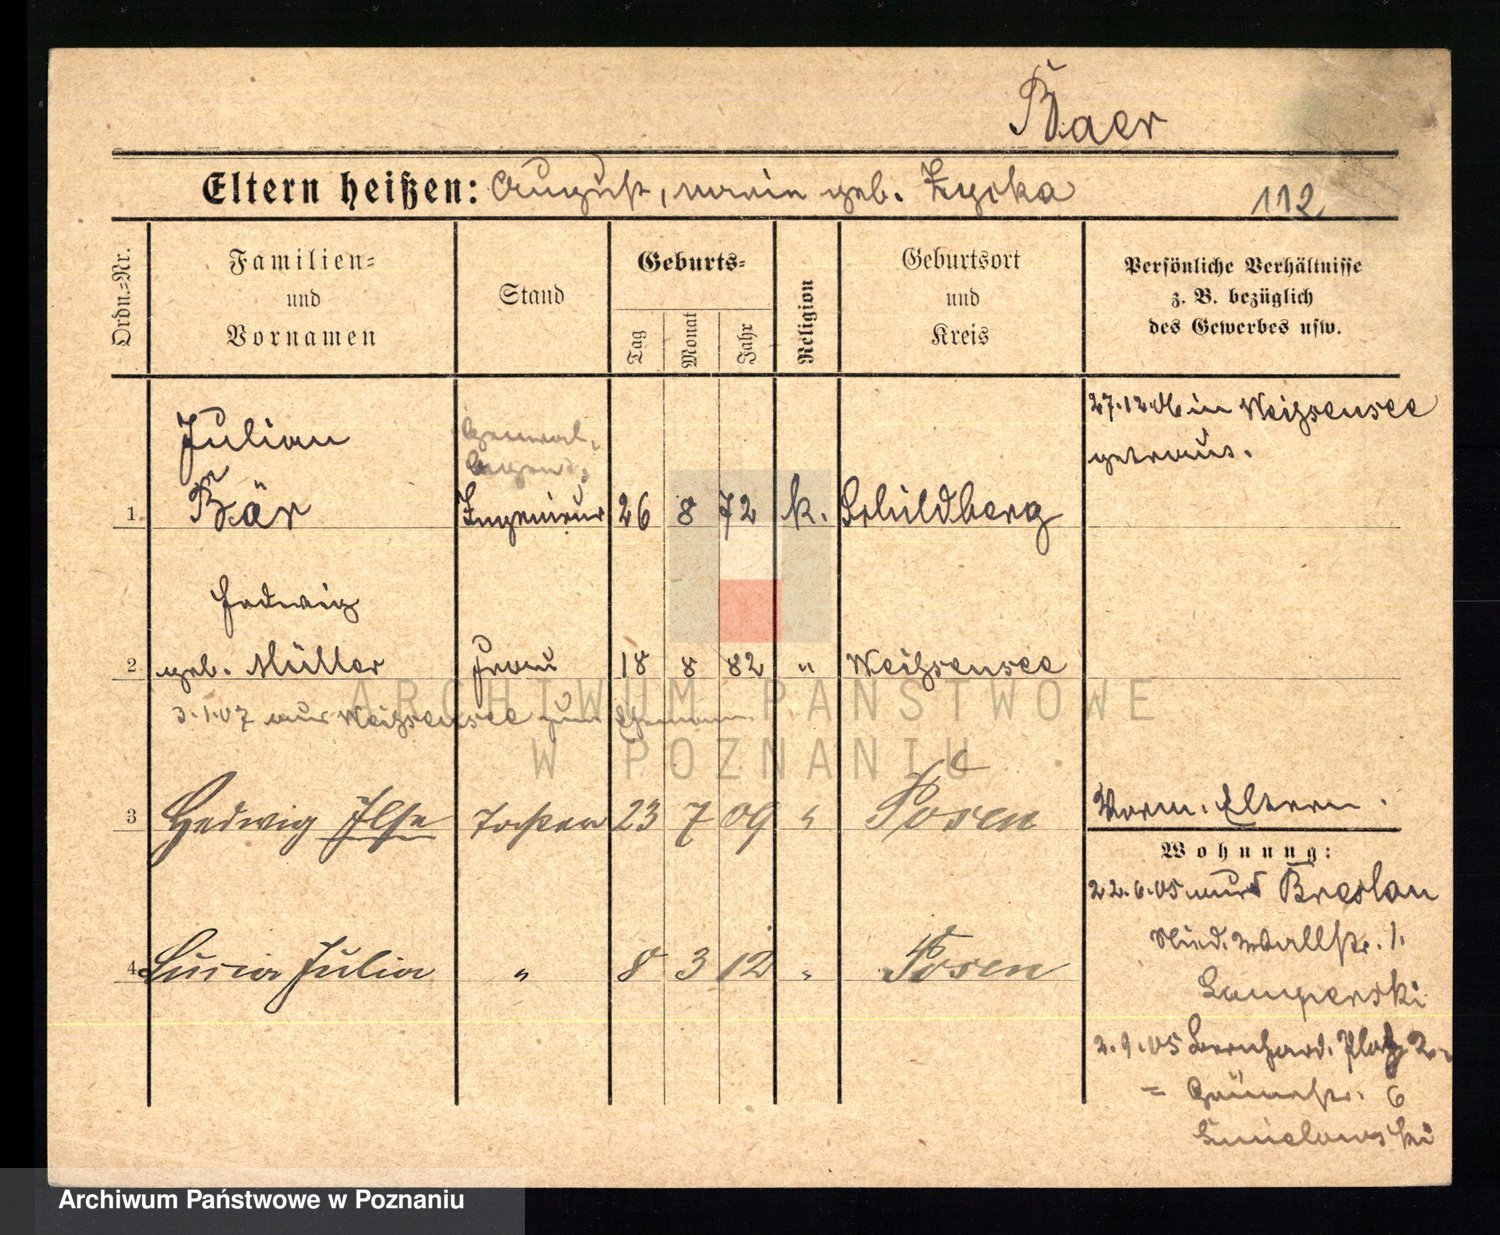 Baer
Eltern heißen: August, Marie geb. Zyska
112
Ordn.=Nr.
Familien=
und
Vornamen
Stand
Geburts=
Tag
Monat
Jahr
Religion
Geburtsort
und
Kreis
Persönliche Verhältnisse
z. B. bezüglich
des Gewerbes usw.
27.12.06 in Weißensee
getraut.
Julian
General=
Agent,
1 Bär Ingenieur 26 8 72 k. Schildberg
Hedwig
2 geb. Müller Frau 18 8 82 " Weißensee
3.1.07 aus Weißensee zum Ehemann.
3 Hedwig Ilse Tochter 23 7 09 " Posen
Vorm. Eltern.
Wohnung:
22.6.05 aus Breslau
4 Lucia Julia " 8 3 12 " Posen
Wallstr. 1.
2.9.05 Bernhard. Platz 2.
= Grünestr. 6
ARCHIWUM PAŃSTWOWE
W POZNANIU
Archiwum Państwowe w Poznaniu